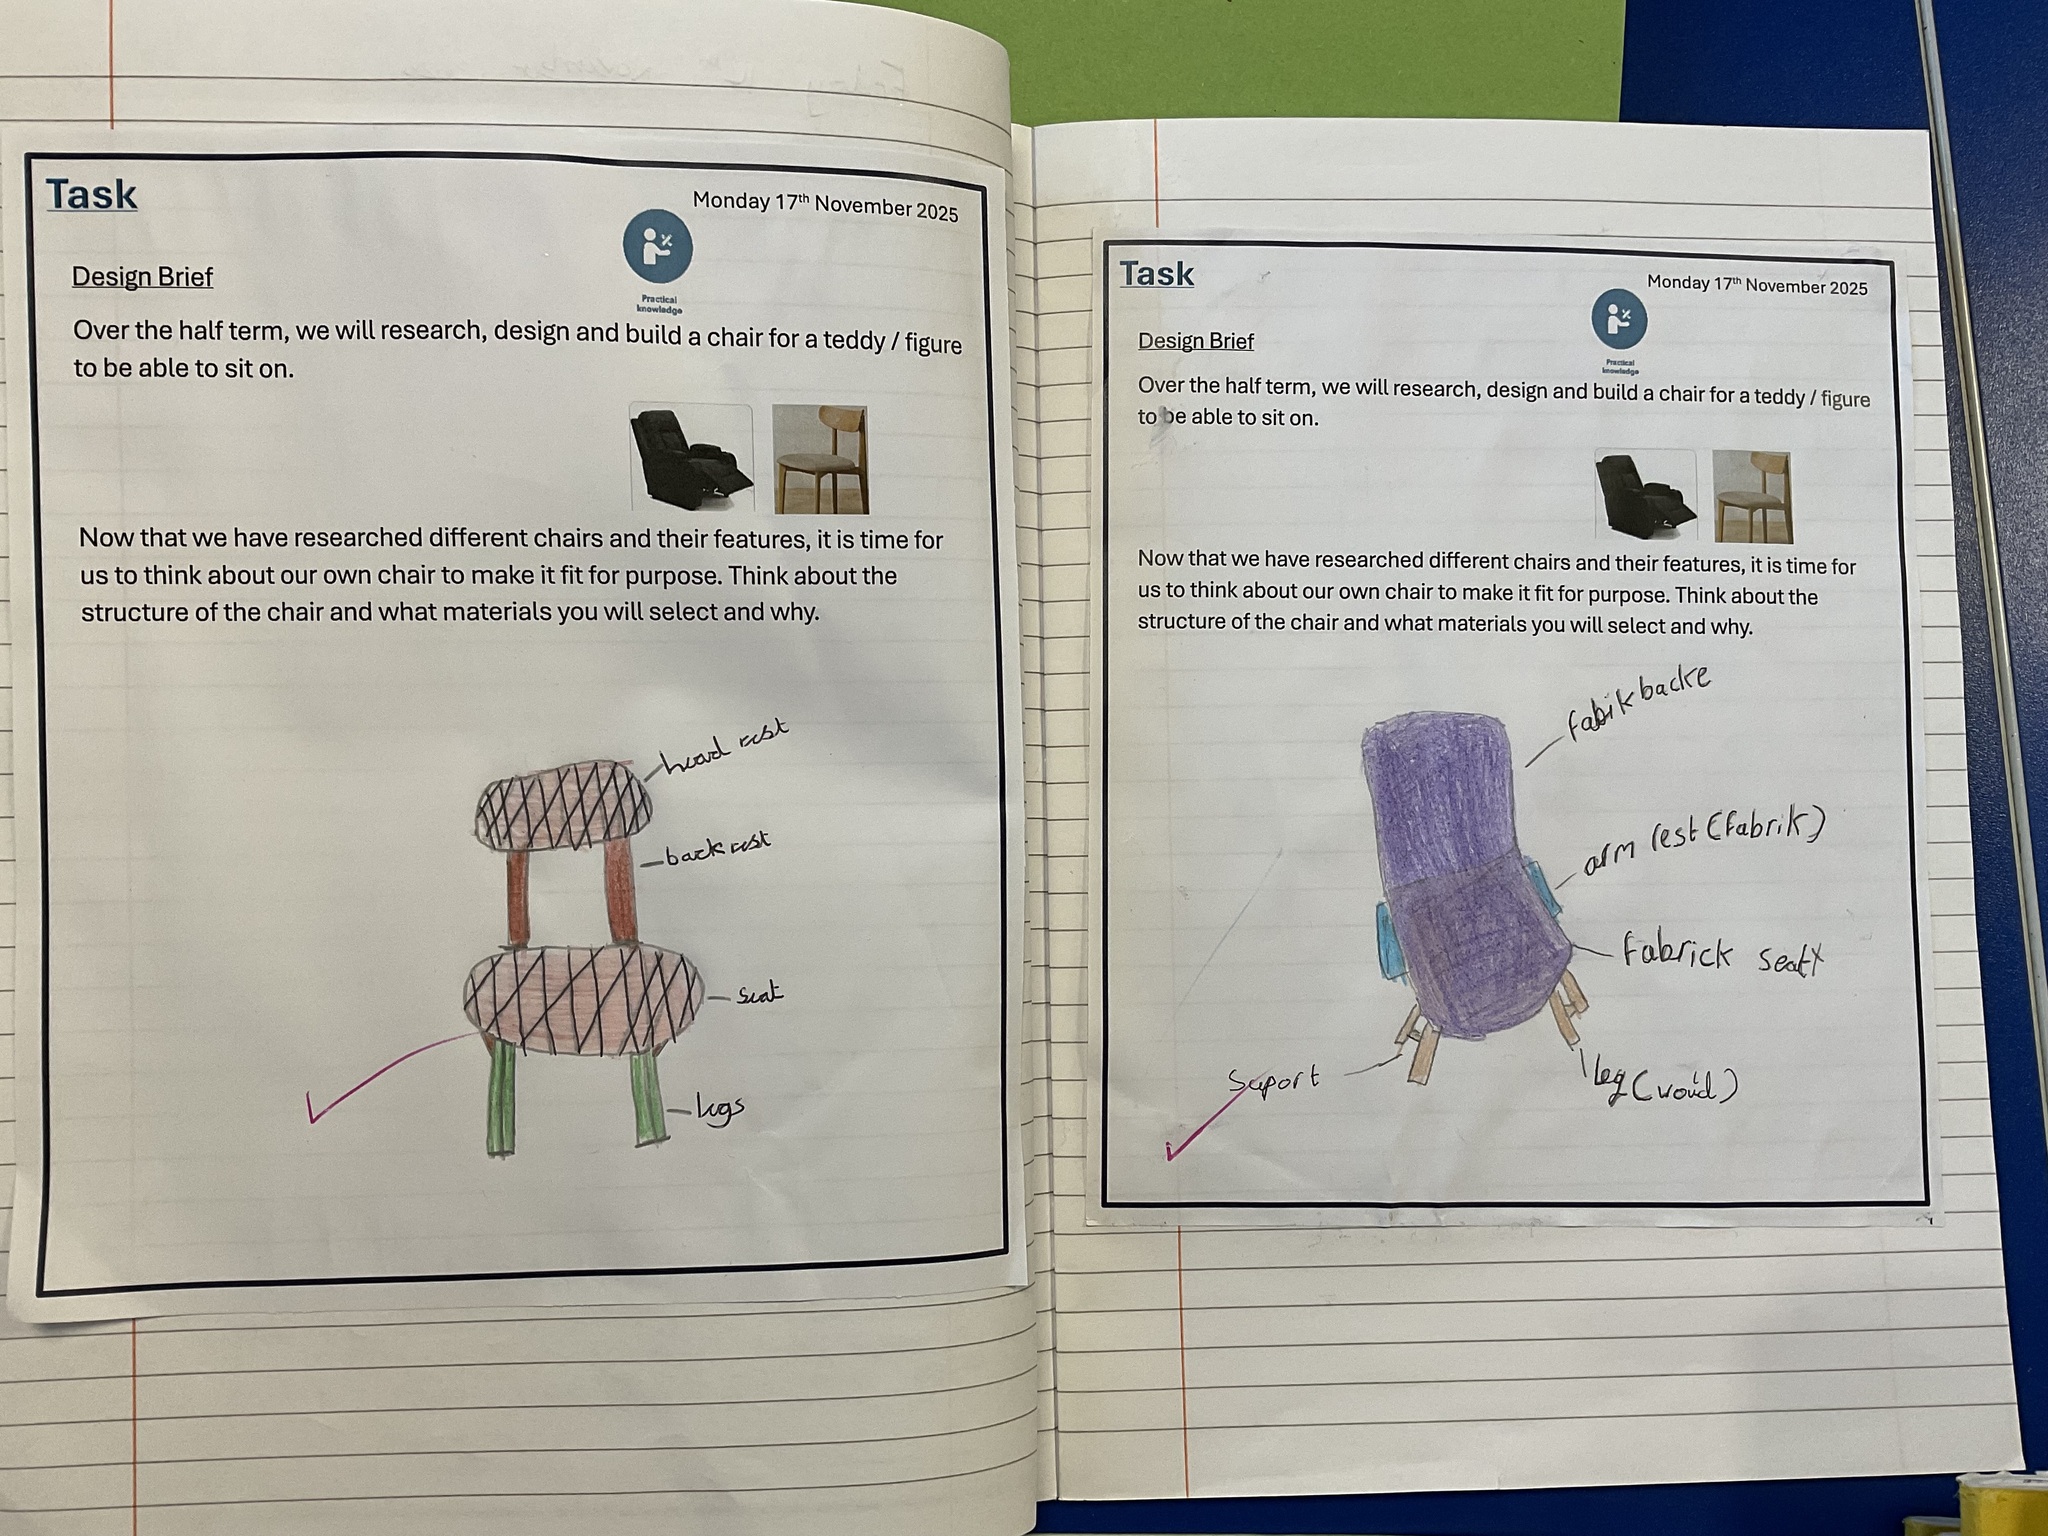 Task
Monday 17th November 2025
Practical
knowledge
Design Brief
Over the half term, we will research, design and build a chair for a teddy / figure
to be able to sit on.
Now that we have researched different chairs and their features, it is time for
us to think about our own chair to make it fit for purpose. Think about the
structure of the chair and what materials you will select and why.
head rest
back rest
seat
legs
Task
Monday 17th November 2025
Practical
knowledge
Design Brief
Over the half term, we will research, design and build a chair for a teddy / figure
to be able to sit on.
Now that we have researched different chairs and their features, it is time for
us to think about our own chair to make it fit for purpose. Think about the
structure of the chair and what materials you will select and why.
fabik backe
arm rest (fabrik)
fabrick seat
Suport
leg (woud)